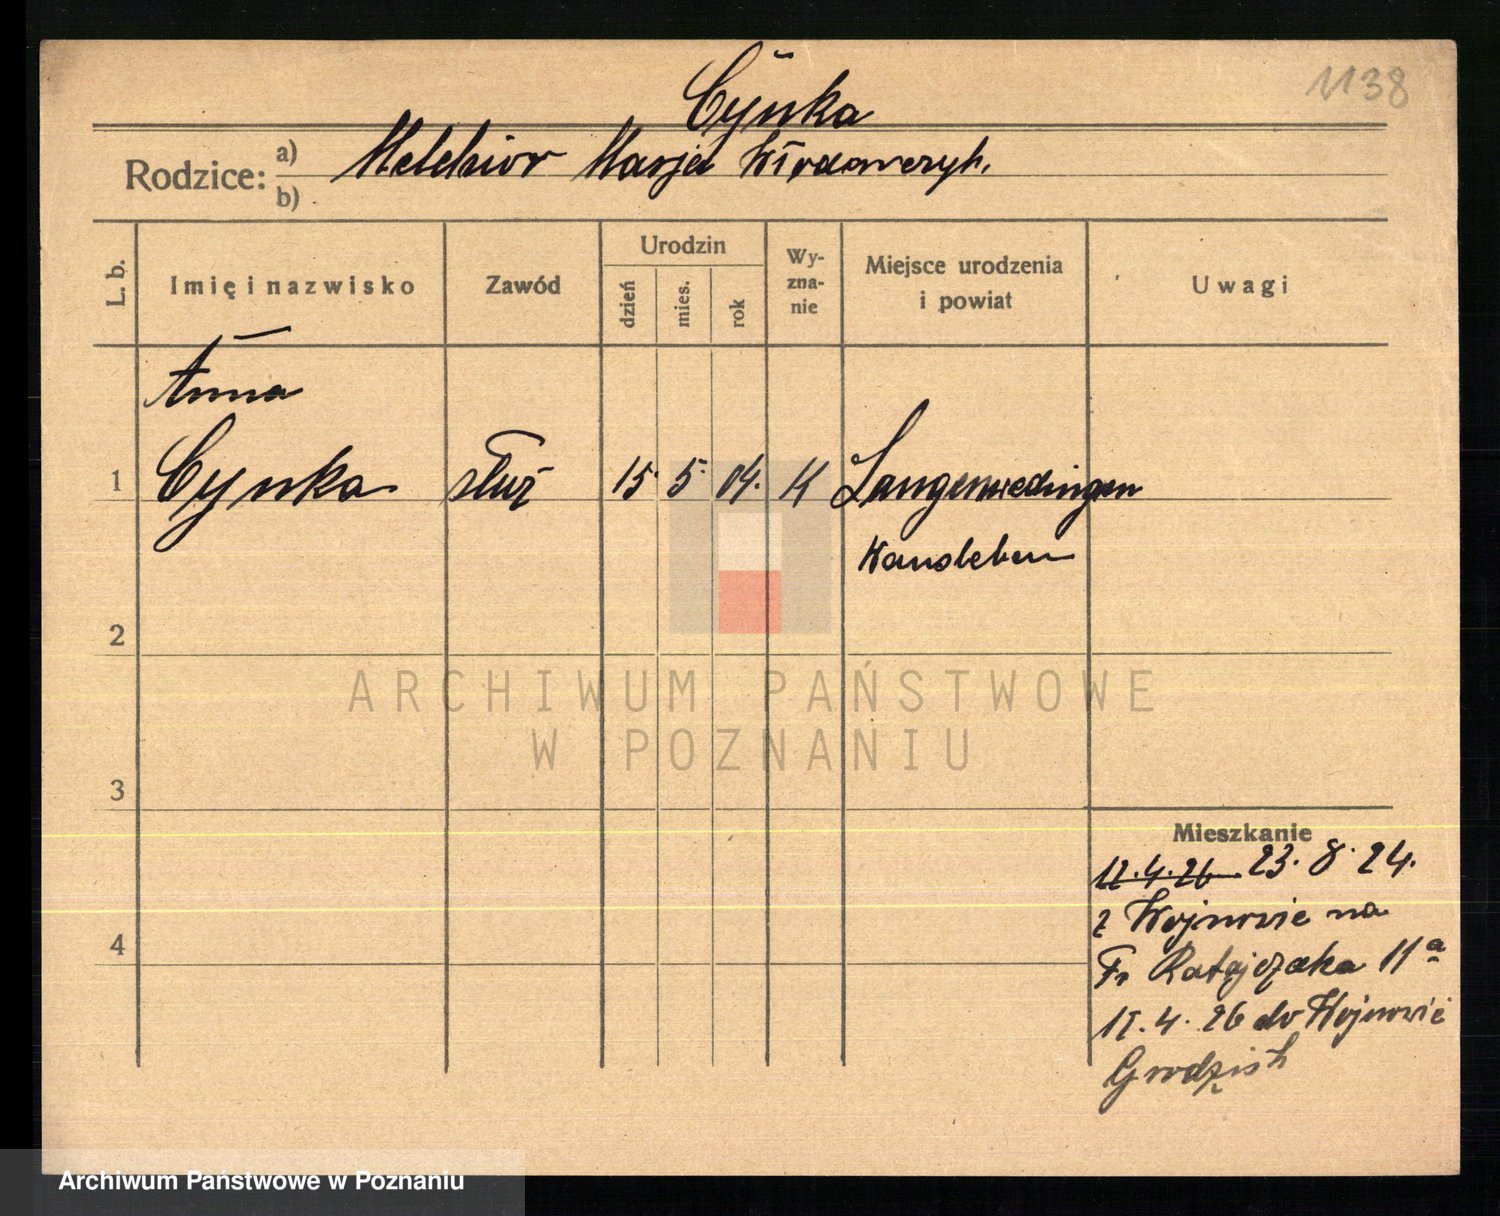 1138
Cynka
Rodzice: a) b)
Melchior Marja
L. b.
Imię i nazwisko
Zawód
Urodzin
dzień
mies.
rok
Wy-
zna-
nie
Miejsce urodzenia
i powiat
Uwagi
Anna
1 Cynka służ 15. 5. 04. K Langenwedingen
Wansleben
2
ARCHIWUM PAŃSTWOWE
W POZNANIU
3
Mieszkanie
12.4.26 23. 8. 24.
z Wojnowic na
Fr Ratajczaka 11a
12. 4. 26 do Wojnowic
4
Grodzisk
Archiwum Państwowe w Poznaniu